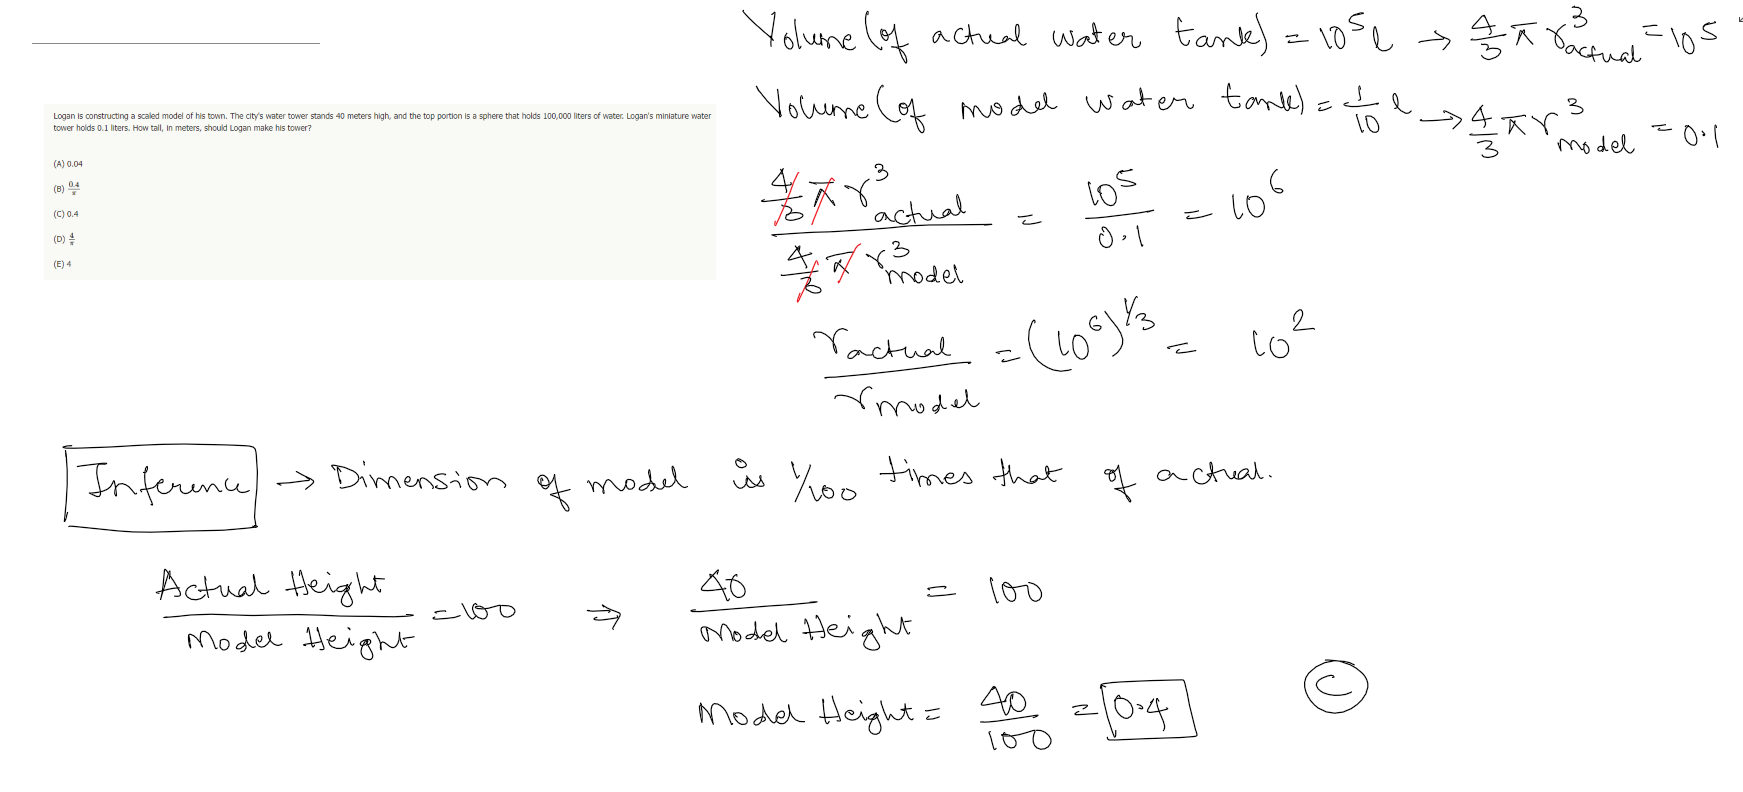 Logan is constructing a scaled model of his town. The city's water tower stands 40 meters high, and the top portion is a sphere that holds 100,000 liters of water. Logan's miniature water
tower holds 0.1 liters. How tall, in meters, should Logan make his tower?
(A) 0.04
(B) 0.4/π
(C) 0.4
(D) 4/π
(E) 4
Volume (of actual water tank) = 10⁵ l → 4/3 π r³actual = 10⁵
Volume (of model water tank) = 1/10 l → 4/3 π r³model = 0.1
4/3 π r³actual / 4/3 π r³model = 10⁵/0.1 = 10⁶
ractual / rmodel = (10⁶)^1/3 = 10²
Inference → Dimension of model is 1/100 times that of actual.
Actual Height / Model Height = 100 ⇒ 40 / Model Height = 100
Model Height = 40/100 = 0.4 C